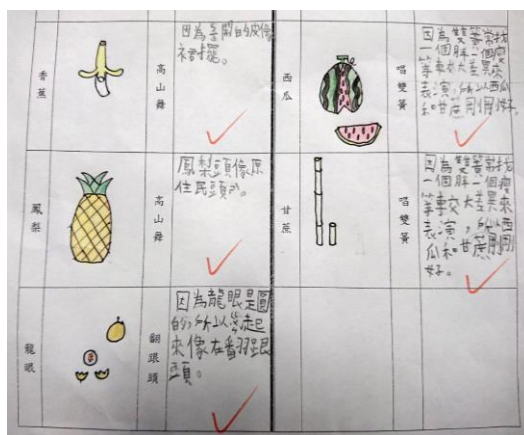 香蕉
高山舞
因為開的皮像
裙擺。
西瓜
唱雙簧
因為雙簧常找
一個胖一個瘦
等較大差異來
表演,所以西瓜
和甘蔗剛剛好。
鳳梨
高山舞
鳳梨頭像原
住民頭。
甘蔗
唱雙簧
因為雙簧常找
一個胖一個瘦
等較大差異來
表演,所以西
瓜和甘蔗剛剛
好。
龍眼
翻跟頭
因為龍眼是圓
的,所以起
來像在翻跟
頭。